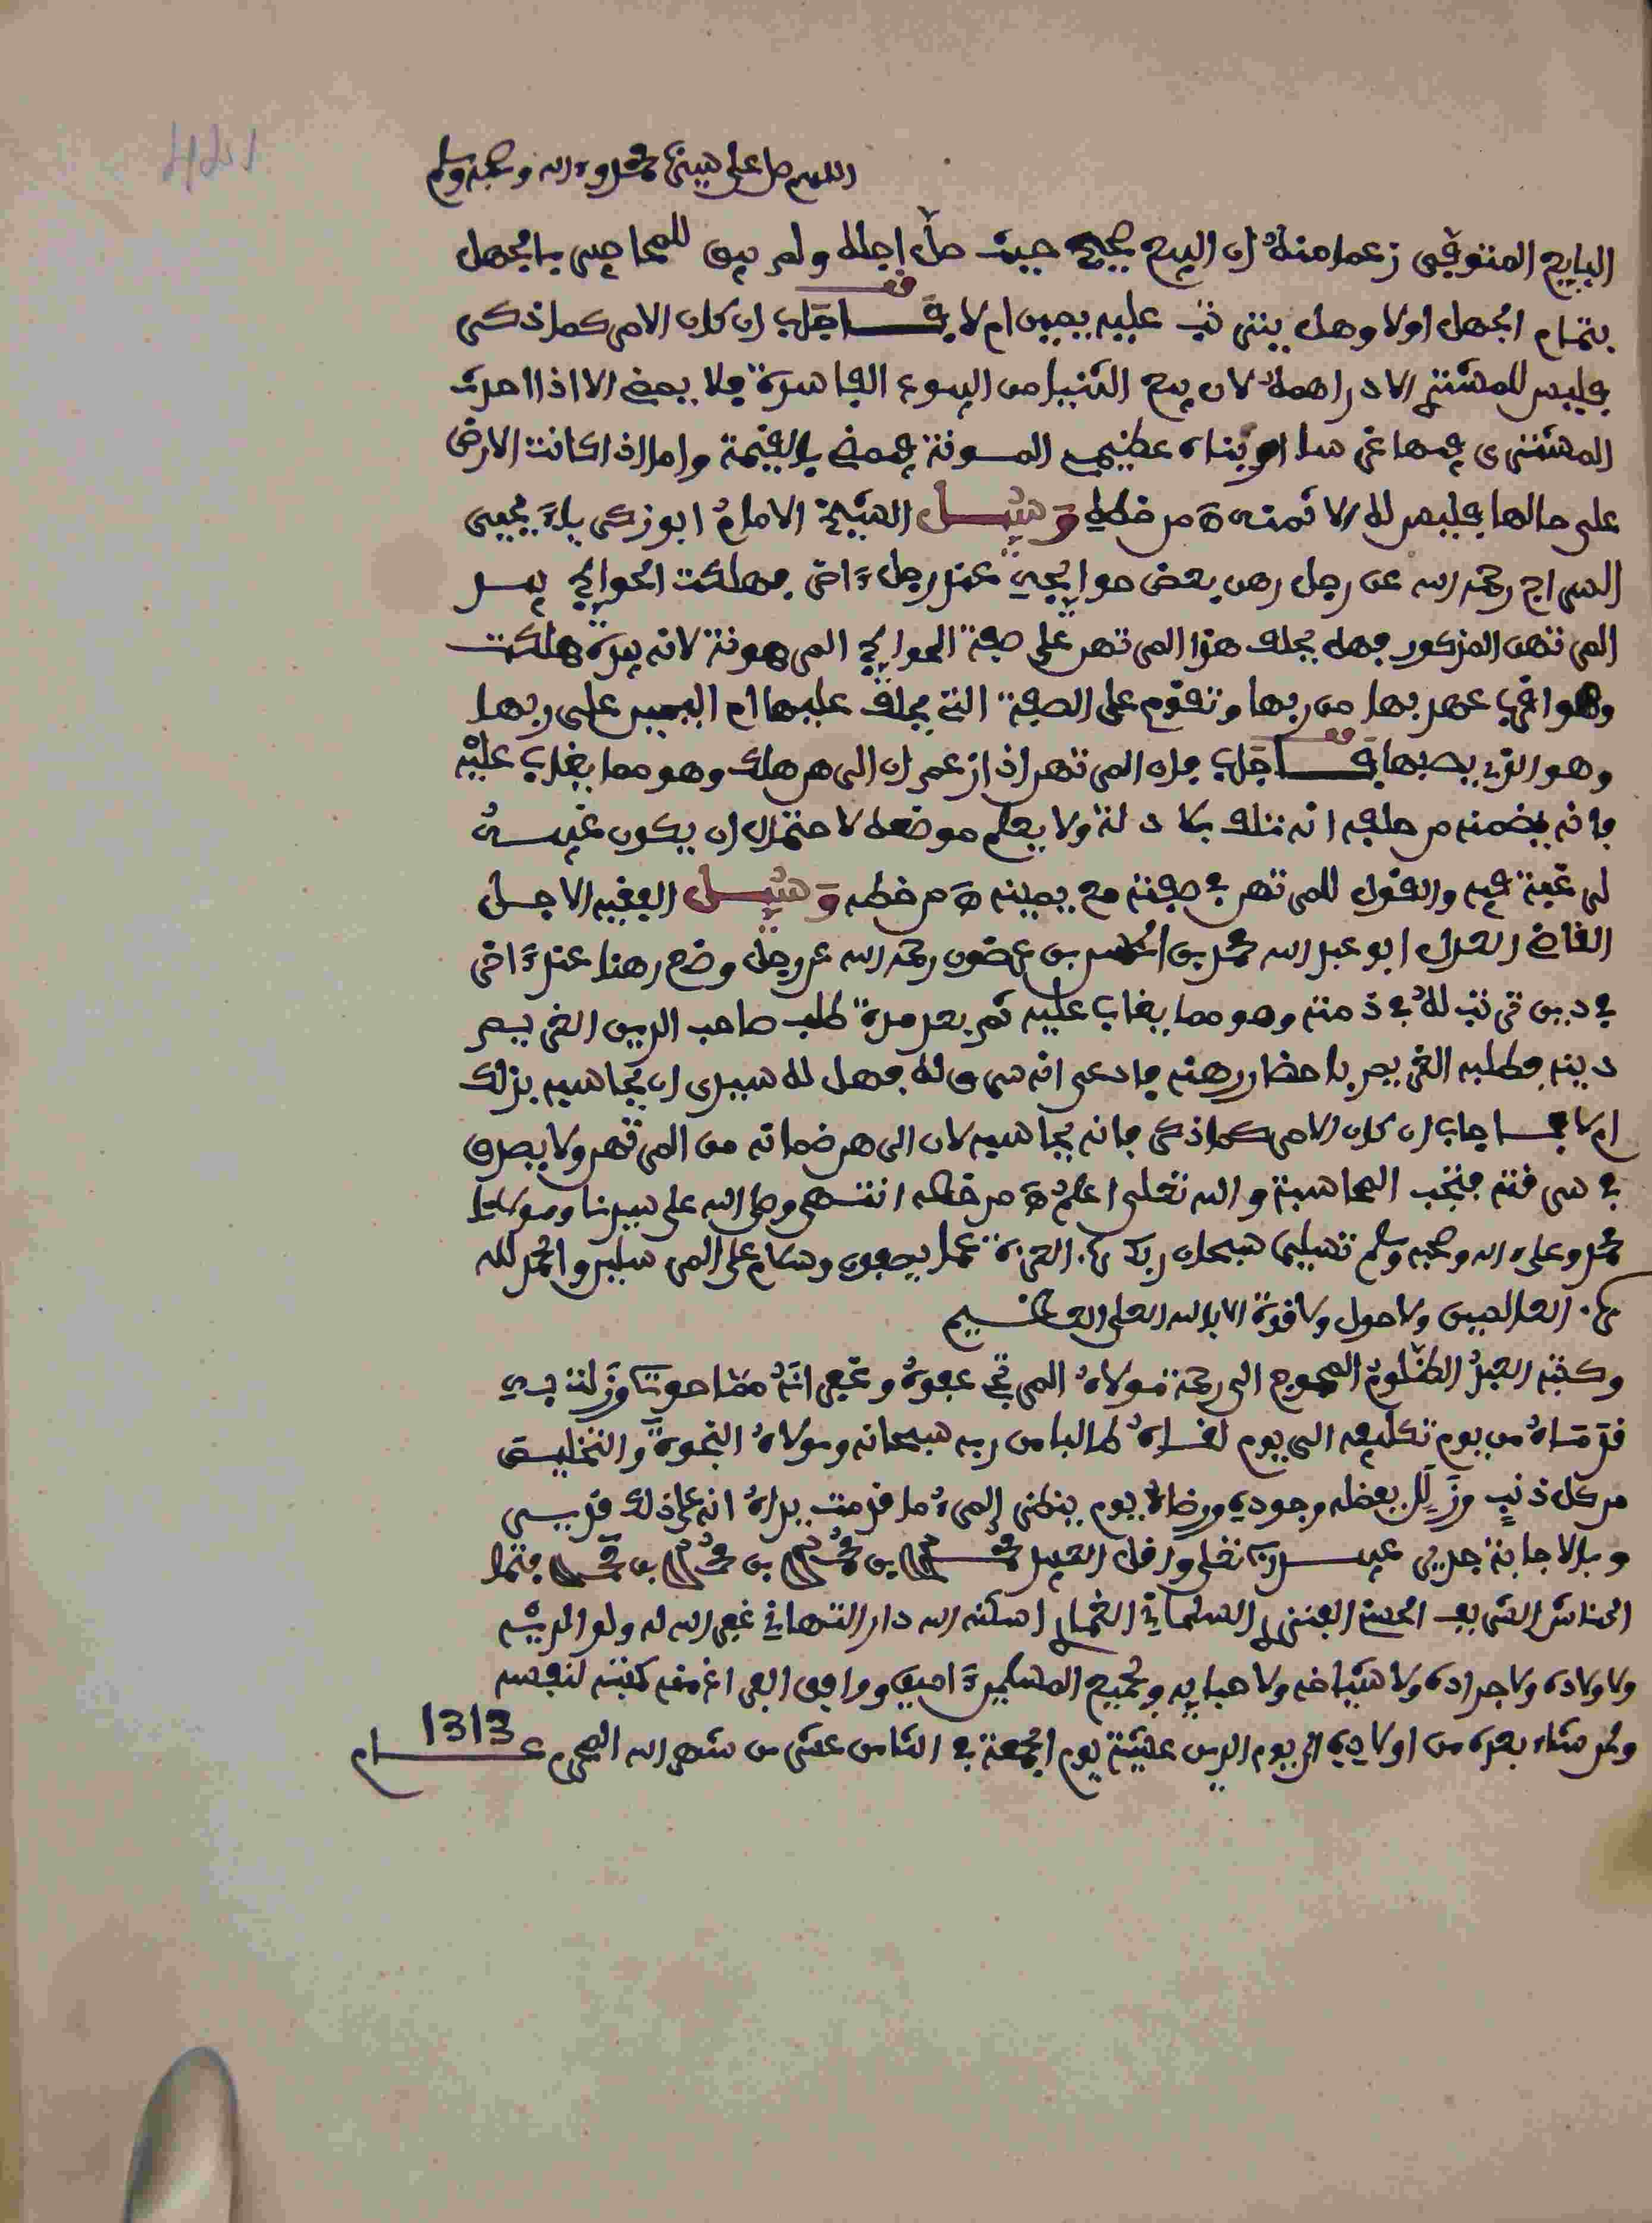 اللهم صل على سيدنا محمد وءاله وصحبه وسلم
البايع المتوفى زعما منه ان البيع صحيح حيث حل اجله ولم يبق للمحاجر
بتمام الجهل اولا وهل يترتب عليه يمين ام لا فاجاب ان كان الامر كما ذكر
فليس للمشتري الا دراهمه لان بيع الثنيا من البيوع الفاسدة فلا يمضي الا اذا احدث
المشتري فيها غرسا او بناء عظيم المئونة فيمضي بالقيمة واما اذا كانت الارض
على حالها فليس له الا ثمنه ه من خطه وسئل الشيخ الامام ابو زكرياء يحيى
السراج رحمه الله عن رجل رهن بعض حوايجه عند رجل ءاخر فهلكت الحوايج بيد
المرتهن المذكور فهل يحلف هذا المرتهن على صفة الحوايج المرهونة لانه بيده هلكت
وهو اقرب عهد بها من ربها وتقوم على الصفة التي يحلف عليها ام اليمين على ربها
وهو الذي يصفها فاجاب فان المرتهن اذا زعم ان الرهن هلك وهو مما يغاب عليه
فانه يضمنه من حلفه انه تلف بلا دلسة ولا يعلم موضعه لاحتمال ان يكون غيبه
لرغبة فيه والقول للمرتهن في صفته مع يمينه ه من خطه وسئل الفقيه الاجل
القاضي العدل ابو عبد الله محمد بن الحسن بن عرضون رحمه الله عن رجل وضع رهنا عند ءاخر
في دين ترتب له في ذمته وهو مما يغاب عليه ثم بعد مدة طلب صاحب الدين الغريم
دينه فطلبه الغريم باحضار رهنه فادعى انه سرق له فهل له سيدي ان يحاسبه بذلك
ام لا فاجاب ان كان الامر كما ذكر فانه يحاسبه لان الرهن ضمانه من المرتهن ولا يصدق
في سرقته فتجب المحاسبة والله تعلى اعلم ه من خطه انتهى وصلى الله على سيدنا ومولانا
محمد وعلى ءاله وصحبه وسلم تسليما سبحان ربك رب العزة عما يصفون وسلام على المرسلين والحمد لله
رب العالمين ولا حول ولا قوة الا بالله العلي العظيم
وكتبه العبد الظلوم المحوج الى رحمة مولاه المرتجي عفوه وغفرانه مما حوته وزلت به
قدماه من يوم تكليفه الى يوم لقاه طالبا من ربه سبحانه ومولاه النجوة والتخليص
من كل ذنب وزلل بفضله وجوده ورضاه يوم ينظر المرء ما قدمت يداه انه على ذلك قدير
وبالاجابة جدير عبيد ربه تعلى واقل العبيد محمد بن محمد بن محمد بن محمد
الشريف الحسني السلماني الغماري اسكنه الله دار التهاني غفر الله له ولوالديه
ولاولاده ولاجداده ولاشياخه ولاحبابه ولجميع المسلمين ءامين ووافق الفراغ منه كتبته لنفسه
ولمن شاء بعده من اولادي الى يوم الدين عشية يوم الجمعة في الثامن عشر من شهر الله المحرم عام 1313